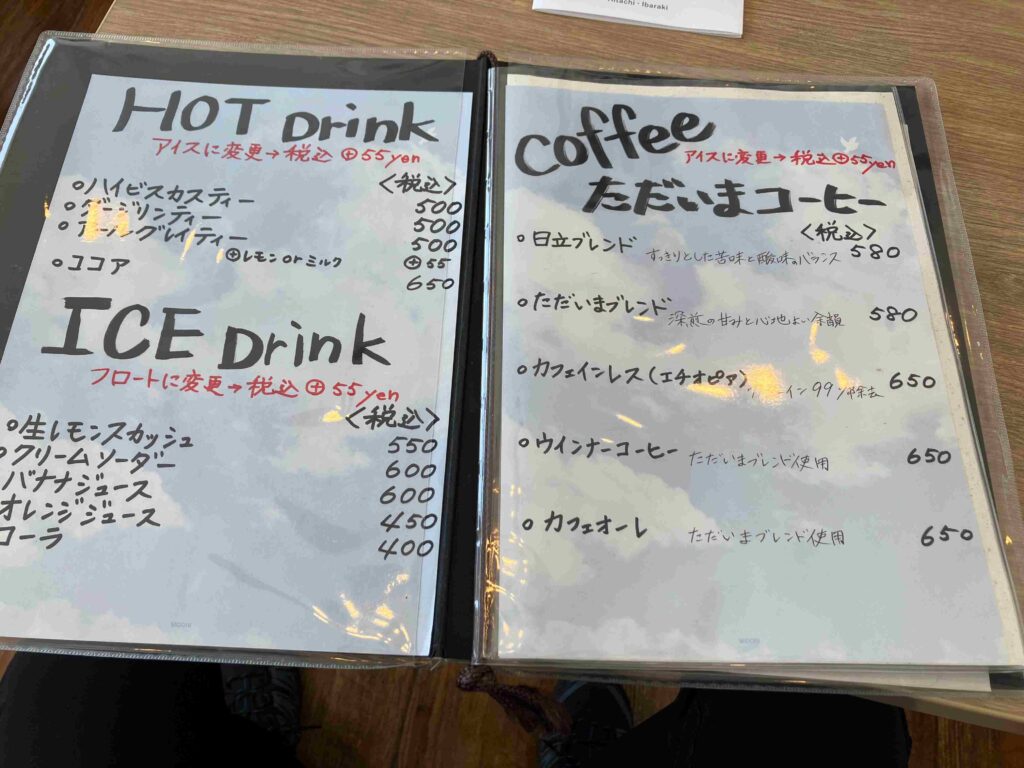 Hitachi・Ibaraki
HOT Drink
アイスに変更→税込⊕55yen
<税込>
○ハイビスカスティー 500
○ダージリンティー 500
○アールグレイティー 500
⊕レモン or ミルク ⊕55
○ココア 650
ICE Drink
フロートに変更→税込⊕55yen
<税込>
○生レモンスカッシュ 550
○クリームソーダー 600
バナナジュース 600
オレンジジュース 450
コーラ 400
coffee
アイスに変更→税込⊕55yen
ただいまコーヒー
<税込>
○日立ブレンド すっきりとした苦味と酸味のバランス 580
○ただいまブレンド 深煎の甘みと心地よい余韻 580
○カフェインレス(エチオピア) 99%除去 650
○ウインナーコーヒー ただいまブレンド使用 650
○カフェオーレ ただいまブレンド使用 650